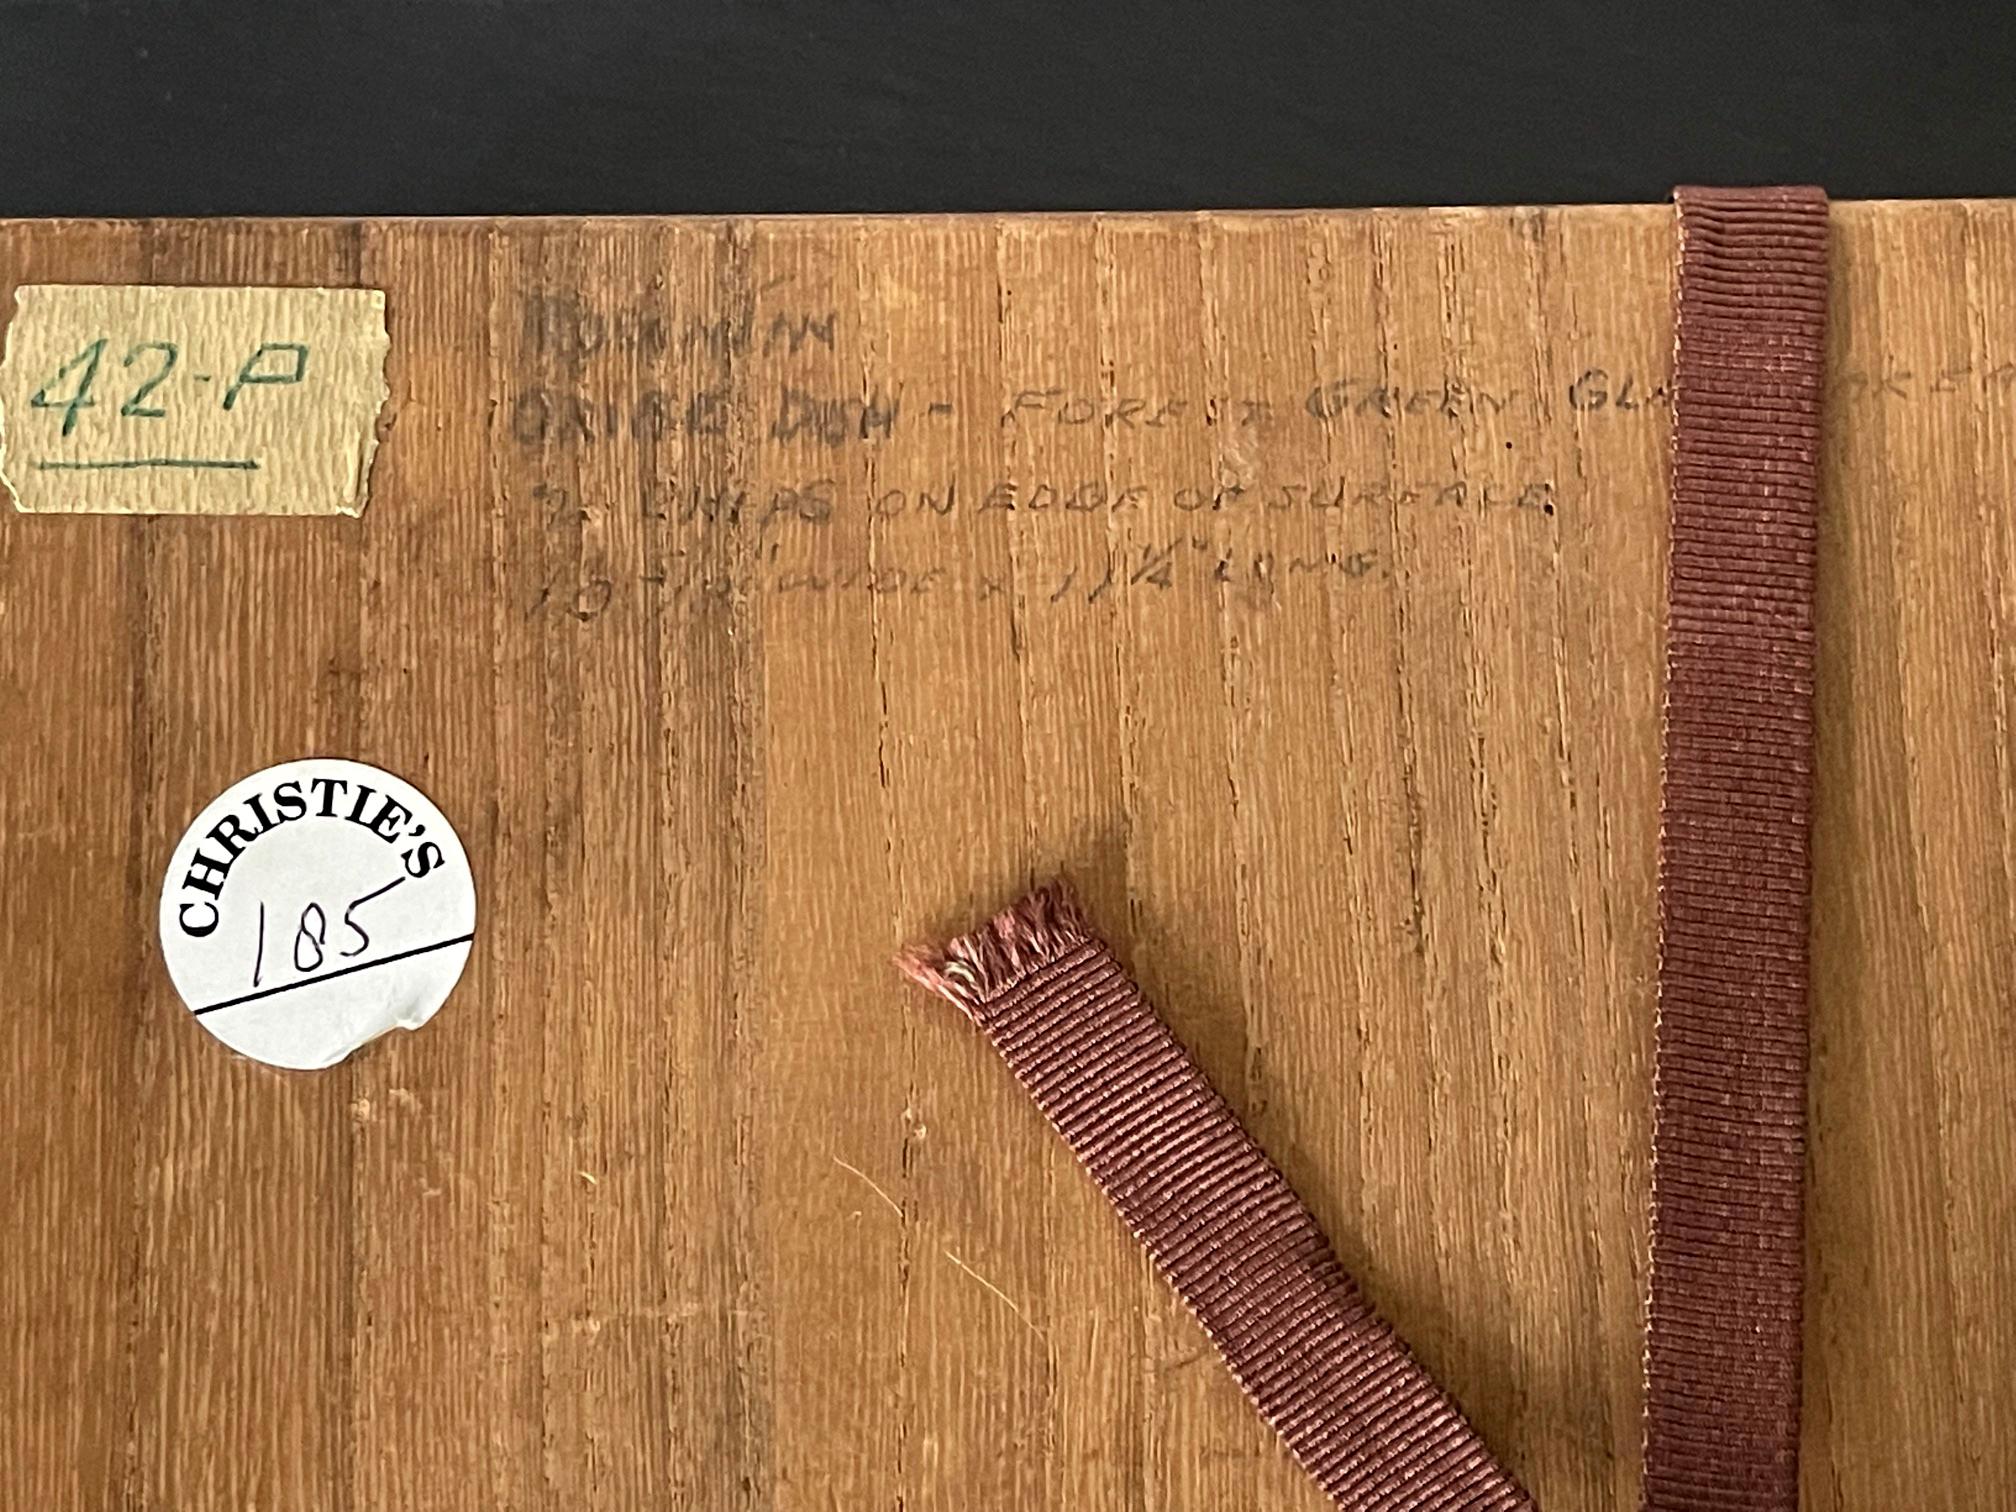 42-P
DISH - FOREST GREEN
2 CHIPS ON EDGE OF SURFACE.
WIDE x 11 1/4" LONG.
CHRISTIE'S
185